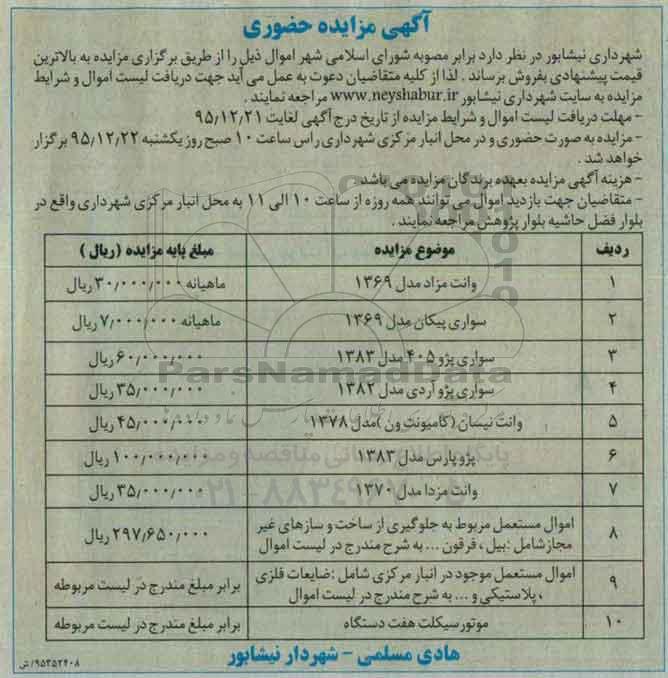 آگهی مزایده حضوری
شهرداری نیشابور در نظر دارد برابر مصوبه شورای اسلامی شهر اموال ذیل را از طریق برگزاری مزایده به بالاترین
قیمت پیشنهادی بفروش برساند . لذا از کلیه متقاضیان دعوت به عمل می آید جهت دریافت لیست اموال و شرایط
مزایده به سایت شهرداری نیشابور www.neyshabur.ir مراجعه نمایند .
- مهلت دریافت لیست اموال و شرایط مزایده از تاریخ درج آگهی لغایت ۹۵/۱۲/۲۱
- مزایده به صورت حضوری و در محل انبار مرکزی شهرداری راس ساعت ۱۰ صبح روز یکشنبه ۹۵/۱۲/۲۲ برگزار
خواهد شد .
- هزینه آگهی مزایده بعهده برندگان مزایده می باشد
- متقاضیان جهت بازدید اموال می توانند همه روزه از ساعت ۱۰ الی ۱۱ به محل انبار مرکزی شهرداری واقع در
بلوار فضل حاشیه بلوار پژوهش مراجعه نمایند .
ردیف موضوع مزایده مبلغ پایه مزایده (ریال )
۱ وانت مزاد مدل ۱۳۶۹ ماهیانه ۳۰/۰۰۰/۰۰۰ ریال
۲ سواری پیکان مدل ۱۳۶۹ ماهیانه ۷/۰۰۰/۰۰۰ ریال
۳ سواری پژو ۴۰۵ مدل ۱۳۸۳ ۶۰/۰۰۰/۰۰۰ ریال
۴ سواری پژو آردی مدل ۱۳۸۲ ۳۵/۰۰۰/۰۰۰ ریال
ParsNamadData
۵ وانت نیسان (کامیونت ون )مدل ۱۳۷۸ ۴۵/۰۰۰/۰۰۰ ریال
۶ پژو پارس مدل ۱۳۸۳ ۱۰۰/۰۰۰/۰۰۰ ریال
۷ وانت مزدا مدل ۱۳۷۰ ۳۵/۰۰۰/۰۰۰ ریال
۸ اموال مستعمل مربوط به جلوگیری از ساخت و سازهای غیر
مجاز شامل :بیل ، فرقون ... به شرح مندرج در لیست اموال ۲۹۷/۶۵۰/۰۰۰ ریال
۹ اموال مستعمل موجود در انبار مرکزی شامل :ضایعات فلزی
، پلاستیکی و ... به شرح مندرج در لیست اموال برابر مبلغ مندرج در لیست مربوطه
۱۰ موتور سیکلت هفت دستگاه برابر مبلغ مندرج در لیست مربوطه
هادی مسلمی - شهردار نیشابور
۹۵۳۵۲۴۰۸/ش